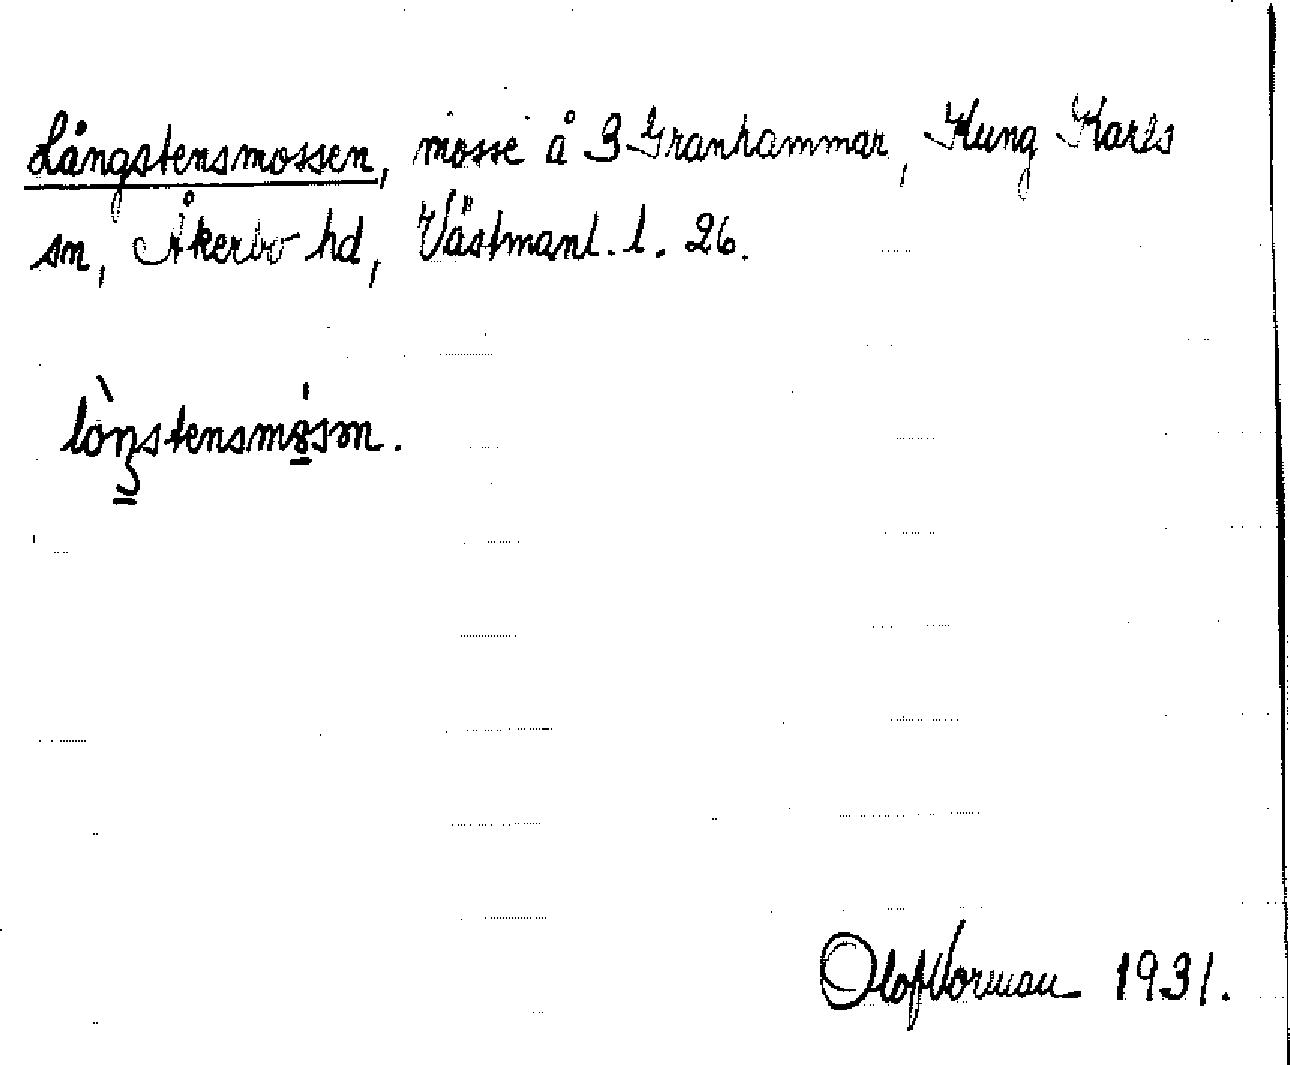 Långstensmossen, mosse å 3 Granhammar, Kung Karls
sn, Åkerbo hd, Västmanl. l. 26.
lòŋstensmósən.
Olof Norman 1931.